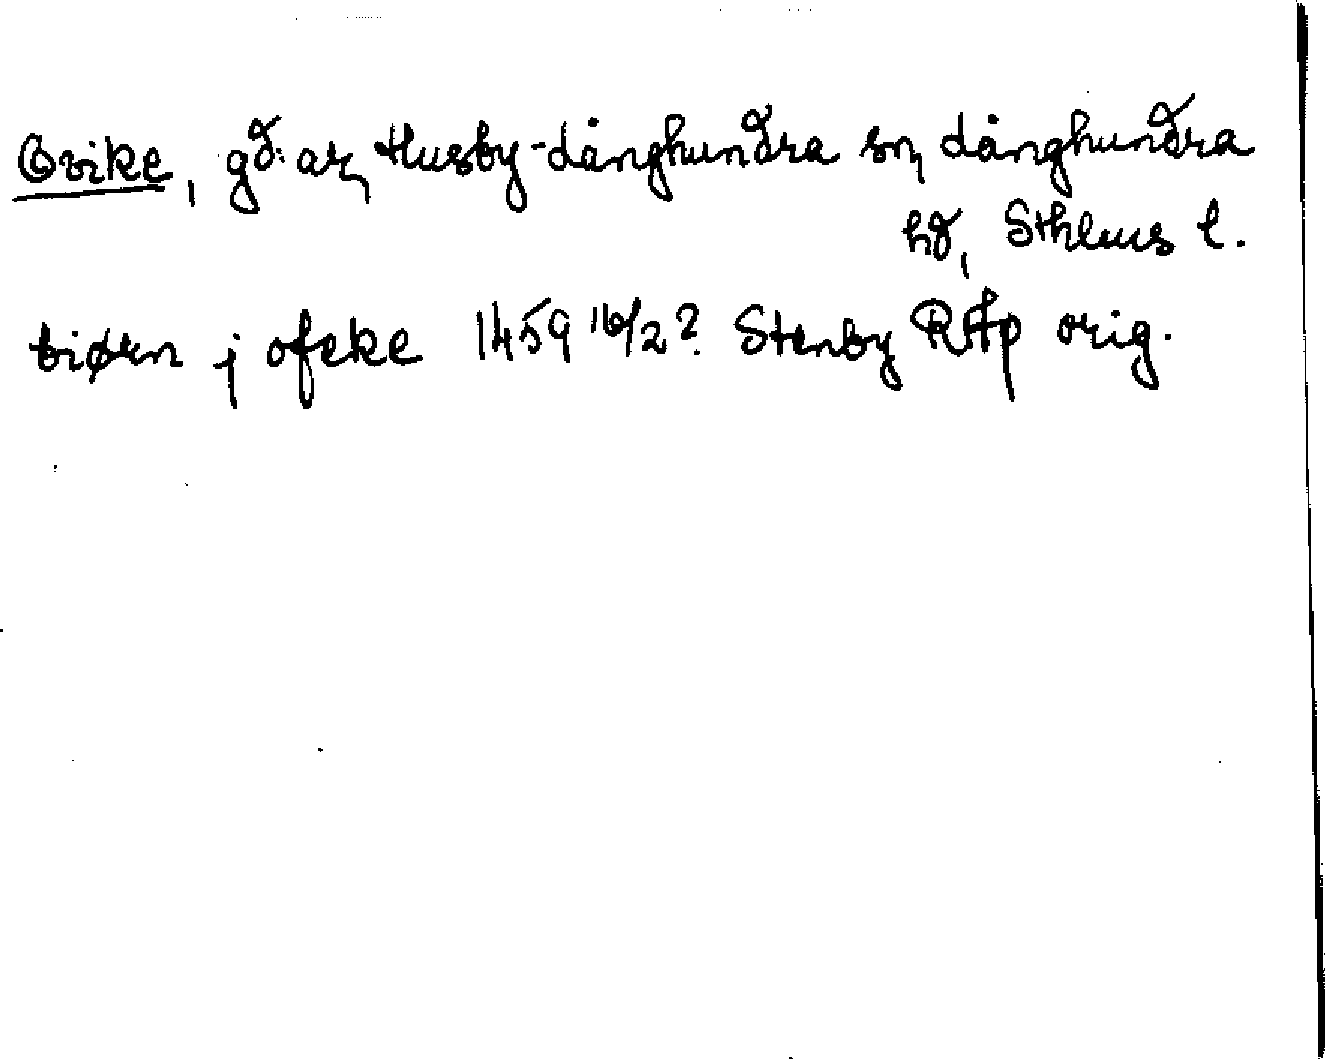 Ovike, gd: ar, Husby-Långhundra sn, Långhundra
hd, Sthlms l.
biørn j ofeke 1459 16/2? Stenby RAp orig.